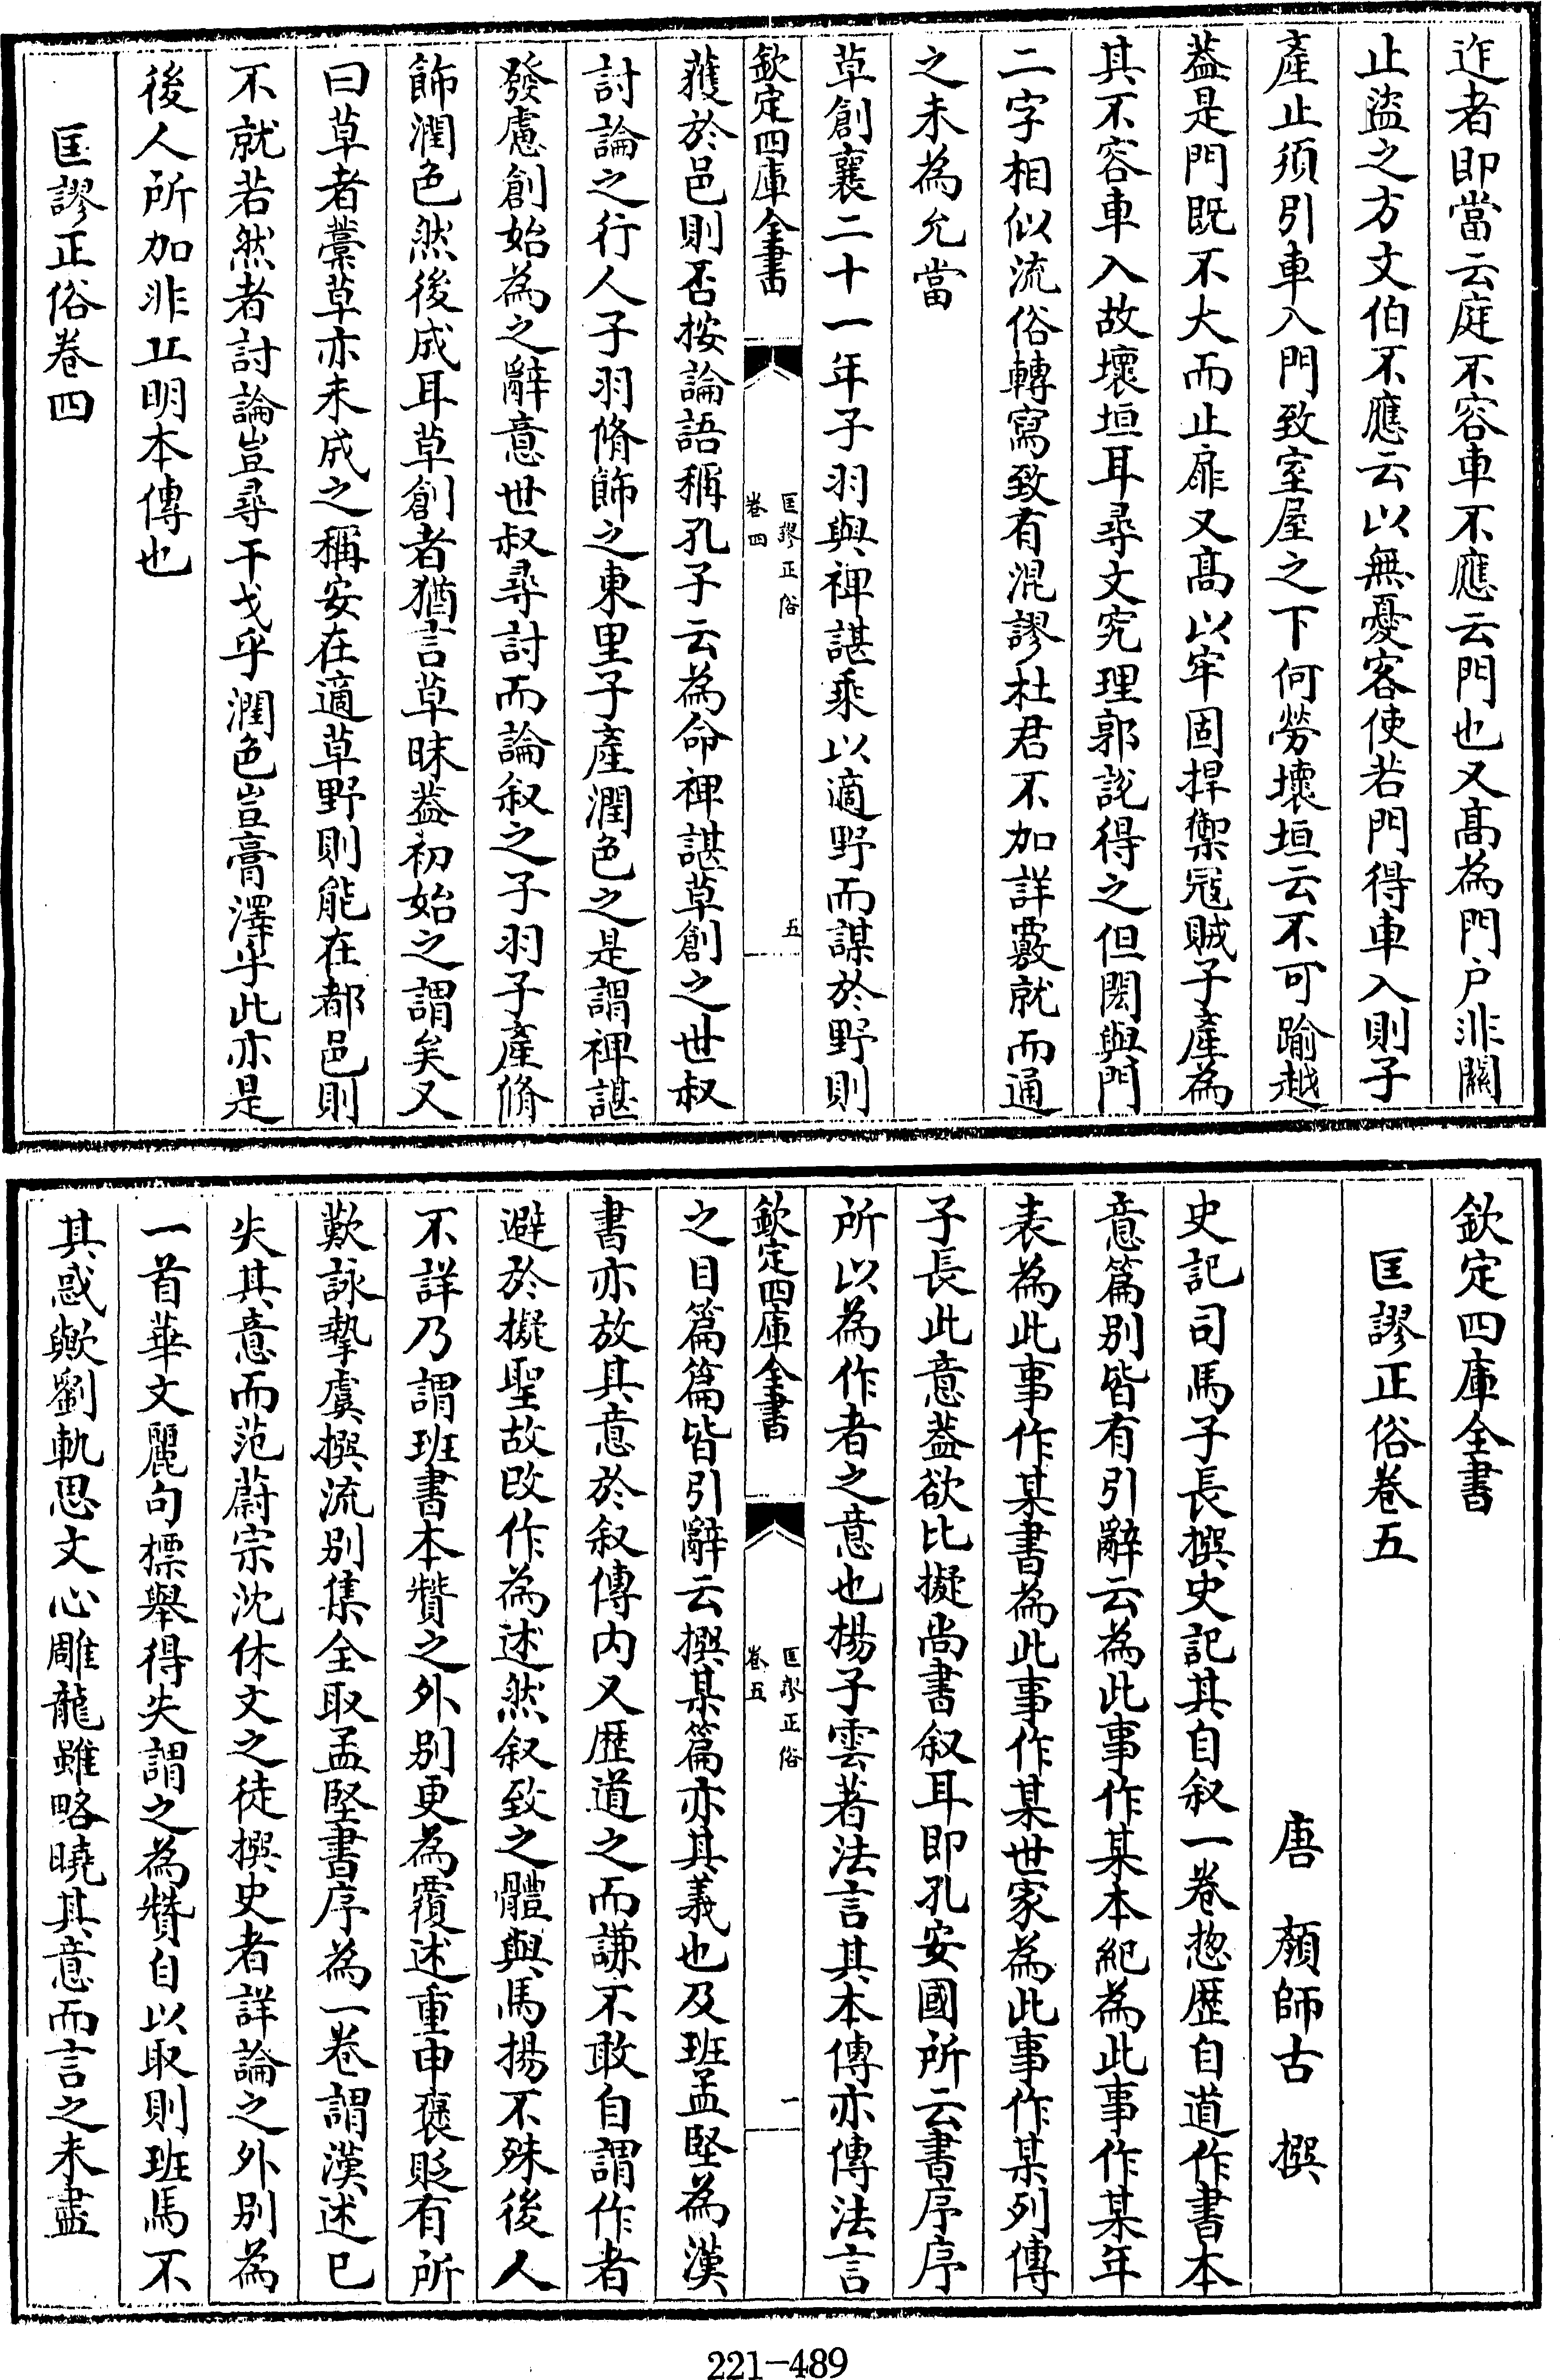 迮者即當云庭不容車不應云門也又髙為門户非關
止盜之方文伯不應云以無憂客使若門得車入則子
產止須引車入門致室屋之下何勞壞垣云不可踰越
葢是門既不大而止扉又髙以牢固捍禦冦賊子產為
其不容車入故壞垣耳尋文究理郭說得之但閎與門
二字相似流俗轉寫致有混謬杜君不加詳覈就而通
之未為允當
草創襄二十一年子羽與裨諶乘以適野而謀於野則
欽定四庫全書
匡謬正俗
卷四
五
獲於邑則否按論語稱孔子云為命裨諶草創之世叔
討論之行人子羽脩飾之東里子產潤色之是謂裨諶
發慮創始為之辭意世叔尋討而論叙之子羽子產脩
飾潤色然後成耳草創者猶言草昧葢初始之謂矣又
曰草者藁草亦未成之稱安在適草野則能在都邑則
不就若然者討論豈尋干戈乎潤色豈膏澤乎此亦是
後人所加非丘明本傳也
匡謬正俗卷四
欽定四庫全書
匡謬正俗卷五
唐　顏師古　撰
史記司馬子長撰史記其自叙一卷揔歴自道作書本
意篇别皆有引辭云為此事作某本紀為此事作某年
表為此事作某書為此事作某世家為此事作某列傳
子長此意葢欲比擬尚書叙耳即孔安國所云書序序
所以為作者之意也揚子雲著法言其本傳亦傳法言
欽定四庫全書
匡謬正俗
卷五
一
之目篇篇皆引辭云撰某篇亦其義也及班孟堅為漢
書亦放其意於叙傳内又歴道之而謙不敢自謂作者
避於擬聖故改作為述然叙致之體與馬揚不殊後人
不詳乃謂班書本贊之外别更為覆述重申褒貶有所
歎詠摯虞撰流别集全取孟堅書序為一卷謂漢述已
失其意而范蔚宗沈休文之徒撰史者詳論之外别為
一首華文麗句標舉得失謂之為贊自以取則班馬不
其惑歟劉軌思文心雕龍雖略曉其意而言之未盡
221-489